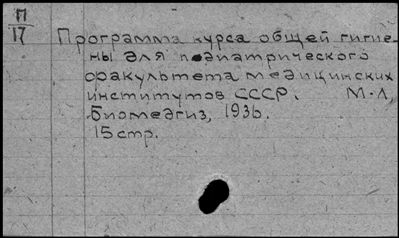 П
17
Программа курса общей гигие-
ны для педиатрического
факультета медицинских
институтов СССР. М-Л,
Биомедгиз, 1936.
15 стр.